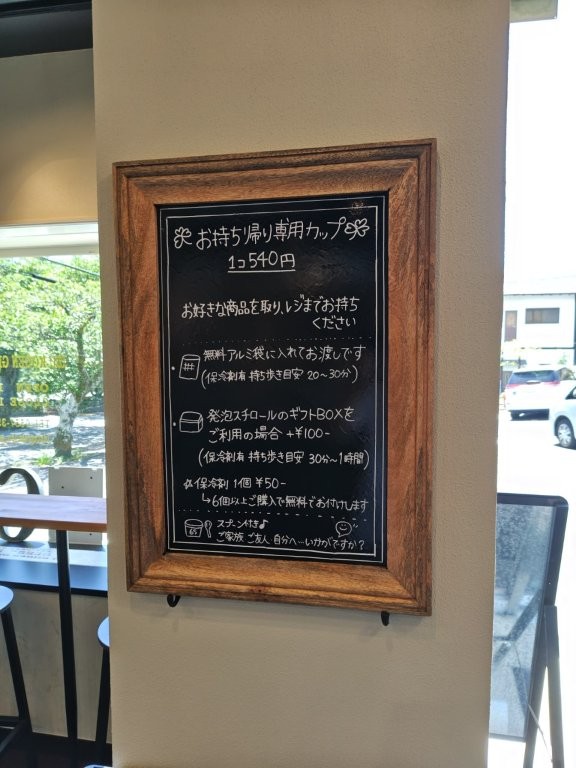 お持ち帰り専用カップ
1コ540円
お好きな商品を取り、レジまでお持ち
ください
無料アルミ袋に入れてお渡しです
(保冷剤有 持ち歩き目安 20〜30分)
発泡スチロールのギフトBOXを
ご利用の場合 +¥100-
(保冷剤有 持ち歩き目安 30分〜1時間)
☆保冷剤 1個 ¥50-
↳6個以上ご購入で無料でお付けします
スプーン付き♪
ご家族 ご友人 自分へ…いかがですか?